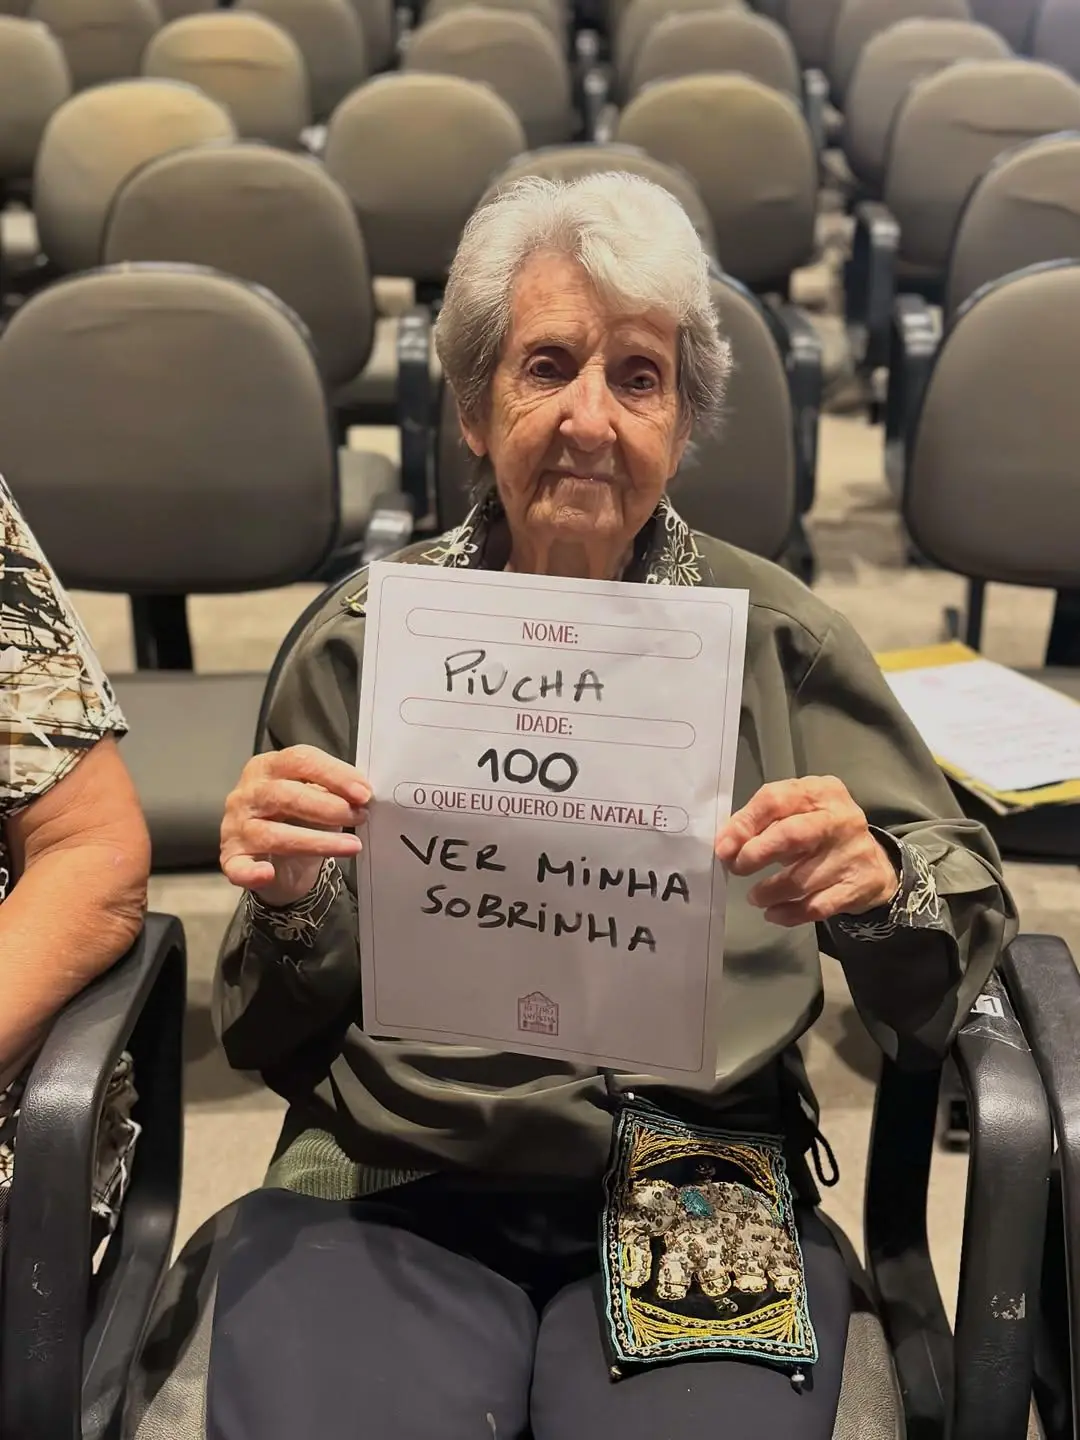 NOME:
PiUCHA
IDADE:
100
O QUE EU QUERO DE NATAL É:
VER MiNHA
SOBRiNHA
RETIRO
DOS
ARTISTAS